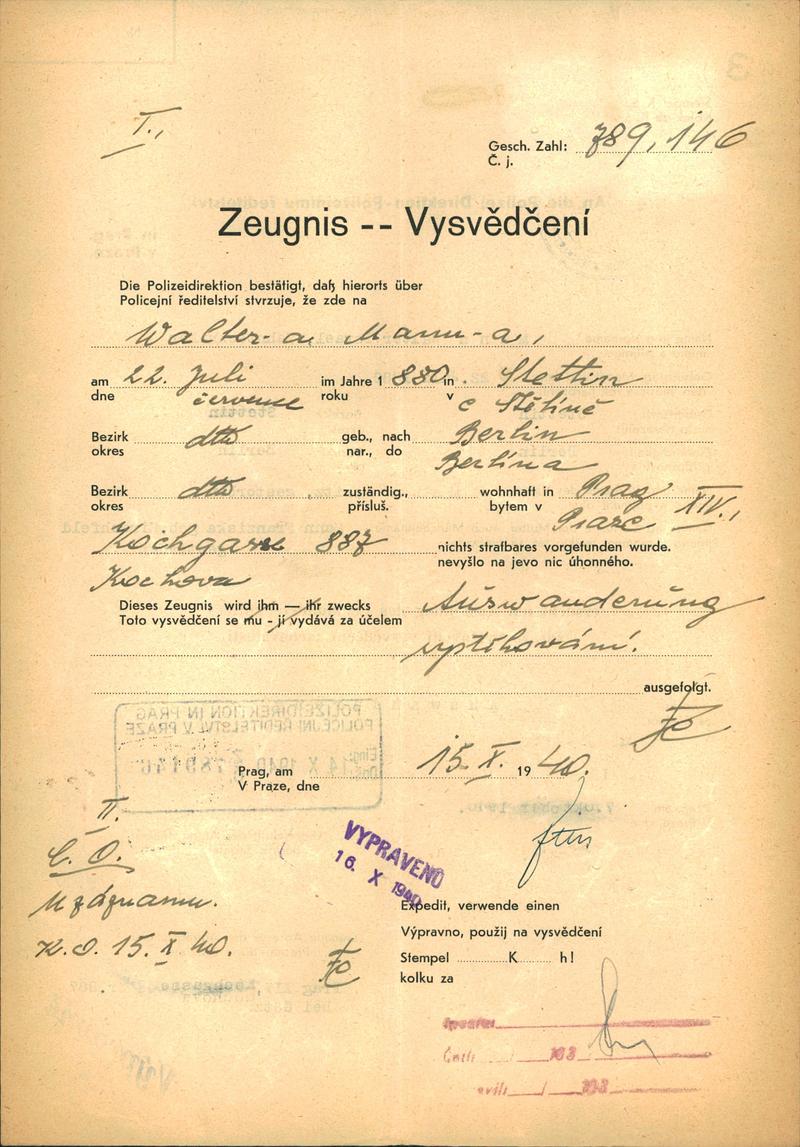 I.,
Gesch. Zahl: 789,146
Č. j.
Zeugnis -- Vysvědčení
Die Polizeidirektion bestätigt, daß hierorts über
Policejní ředitelství stvrzuje, že zde na
Walter-a Mann-a,
am 22. Juli im Jahre 1 880 in Stettin
dne července roku v Štětíně
Bezirk dtto geb., nach Berlin
okres nar., do Berlína
Bezirk dtto zuständig., wohnhaft in Prag
okres přísluš. bytem v Praze XIV.,
Kochgasse 887 nichts strafbares vorgefunden wurde.
nevyšlo na jevo nic úhonného.
Kochova
Dieses Zeugnis wird ihm — ihr zwecks Auswanderung
Toto vysvědčení se mu - jí vydává za účelem
vystěhování.
ausgefolgt.
POLIZEIDIREKTION IN PRAG
POLICEJNÍ ŘEDITELSTVÍ V PRAZE
Eing.: 14 X 1940 789146
Došlo:
Prag, am 15. X. 19 40.
V Praze, dne
II.
VYPRAVENO
16. X 1940
K záznamu.
15. X 40.
Expedit, verwende einen
Výpravno, použij na vysvědčení
Stempel K h!
kolku za